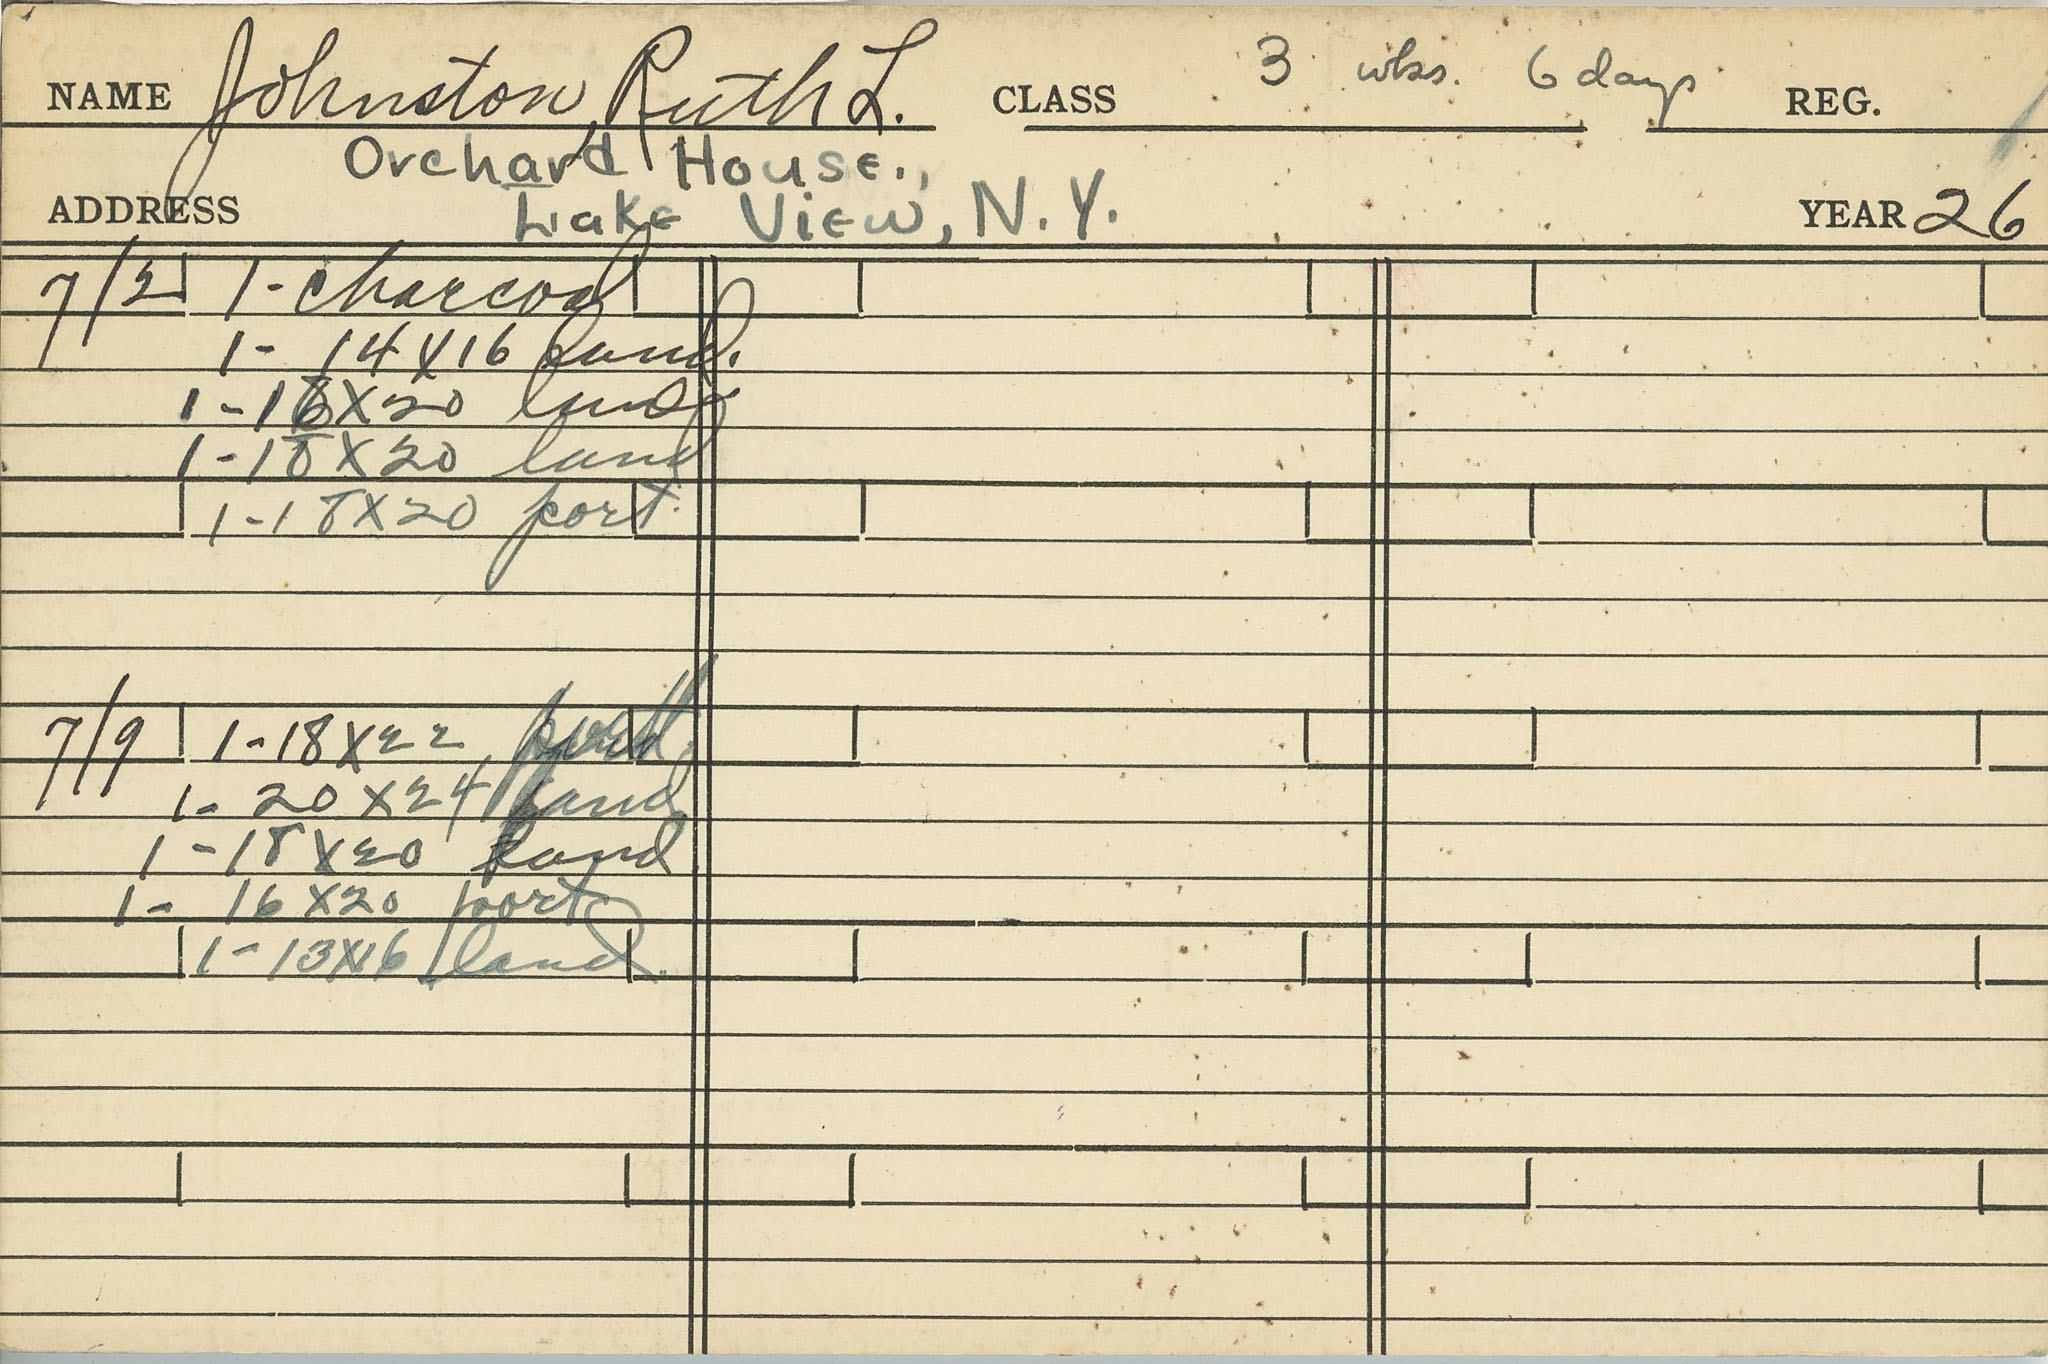 NAME Johnston, Ruth L. CLASS 3 wks. 6 days REG.
Orchard House.,
ADDRESS Lake View, N.Y. YEAR 26
7/2 1-charcoal
1- 14X16 land.
1-16X20 land
1-18X20 land
1-18X20 port.
7/9 1-18X22
1- 20X24 land
1-18X20 land
1- 16X20 port
1-13X16 land.